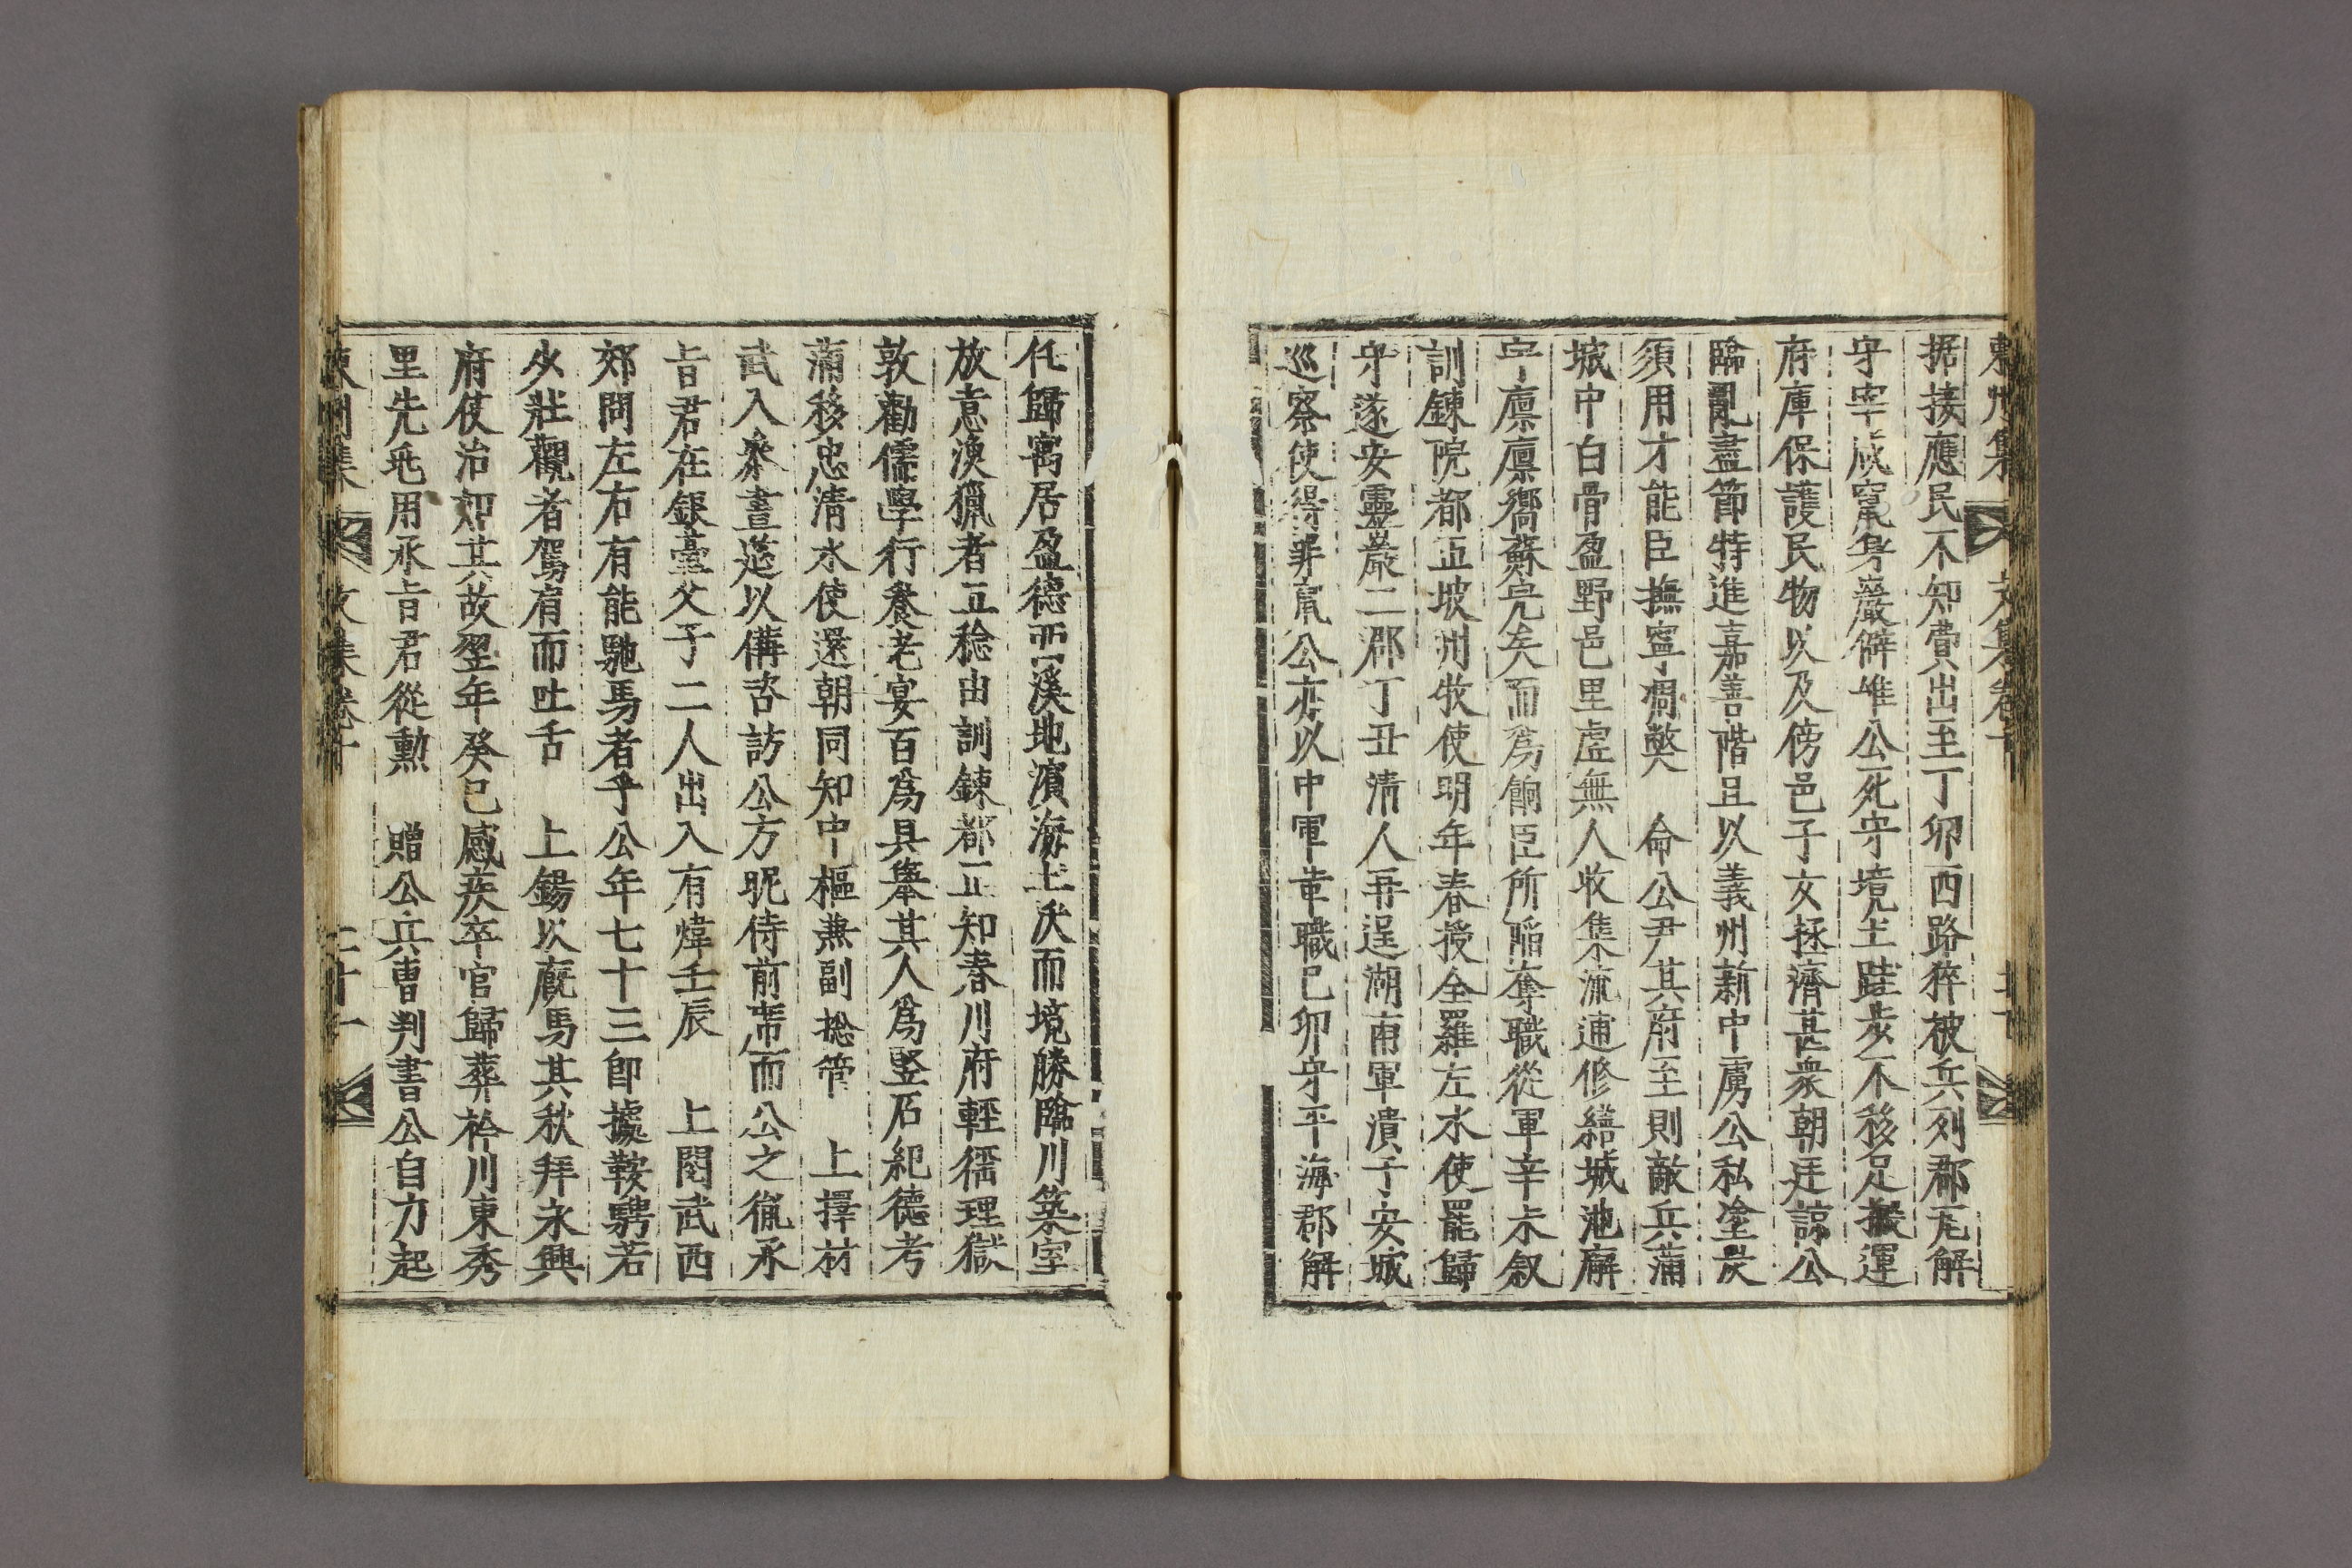 東州集 文集卷十 二十
据接應民不知費出至丁卯西路猝被兵列郡瓦解
守宰咸竄身巖僻唯公死守境土跬步不移足搬運
府庫保護民物以及傍邑子女拯濟甚衆朝廷諒公
臨亂盡節特進嘉善階且以義州新中虜公私塗炭
須用才能臣撫寧凋獘 命公尹其府至則敵兵蒲
城中白骨盈野邑里虛無人收集流逋修繕城池廨
宇凜凜嚮蘇完矣而爲餉臣所陷奪職從軍辛未叙
訓鍊院都正坡州牧使明年春授全羅左水使罷歸
守遂安靈巖二郡丁丑清人再逞湖南軍潰于安城
巡察使得罪竄公亦以中軍革職己卯守平海郡解
任歸寓居盈德西溪地濱海土沃而境勝臨川築室
放意漁獵者五稔由訓鍊都正知春川府輕徭理獄
敦勸儒學行養老宴百爲具擧其人爲竪石紀德考
滿移忠淸水使還朝同知中樞兼副摠管 上擇材
武入叅晝筵以備咨訪公方昵侍前席而公之胤承
旨君在銀臺父子二人出入有煒壬辰 上閱武西
郊問左右有能馳馬者乎公年七十三卽據鞍騁若
少壯觀者駕肩而吐舌 上錫以廐馬其秋拜永興
府使治如其故翌年癸巳感疾卒官歸葬衿川東秀
里先兆用承旨君從勳 贈公兵曹判書公自力起
東州集 文集卷十 二十一